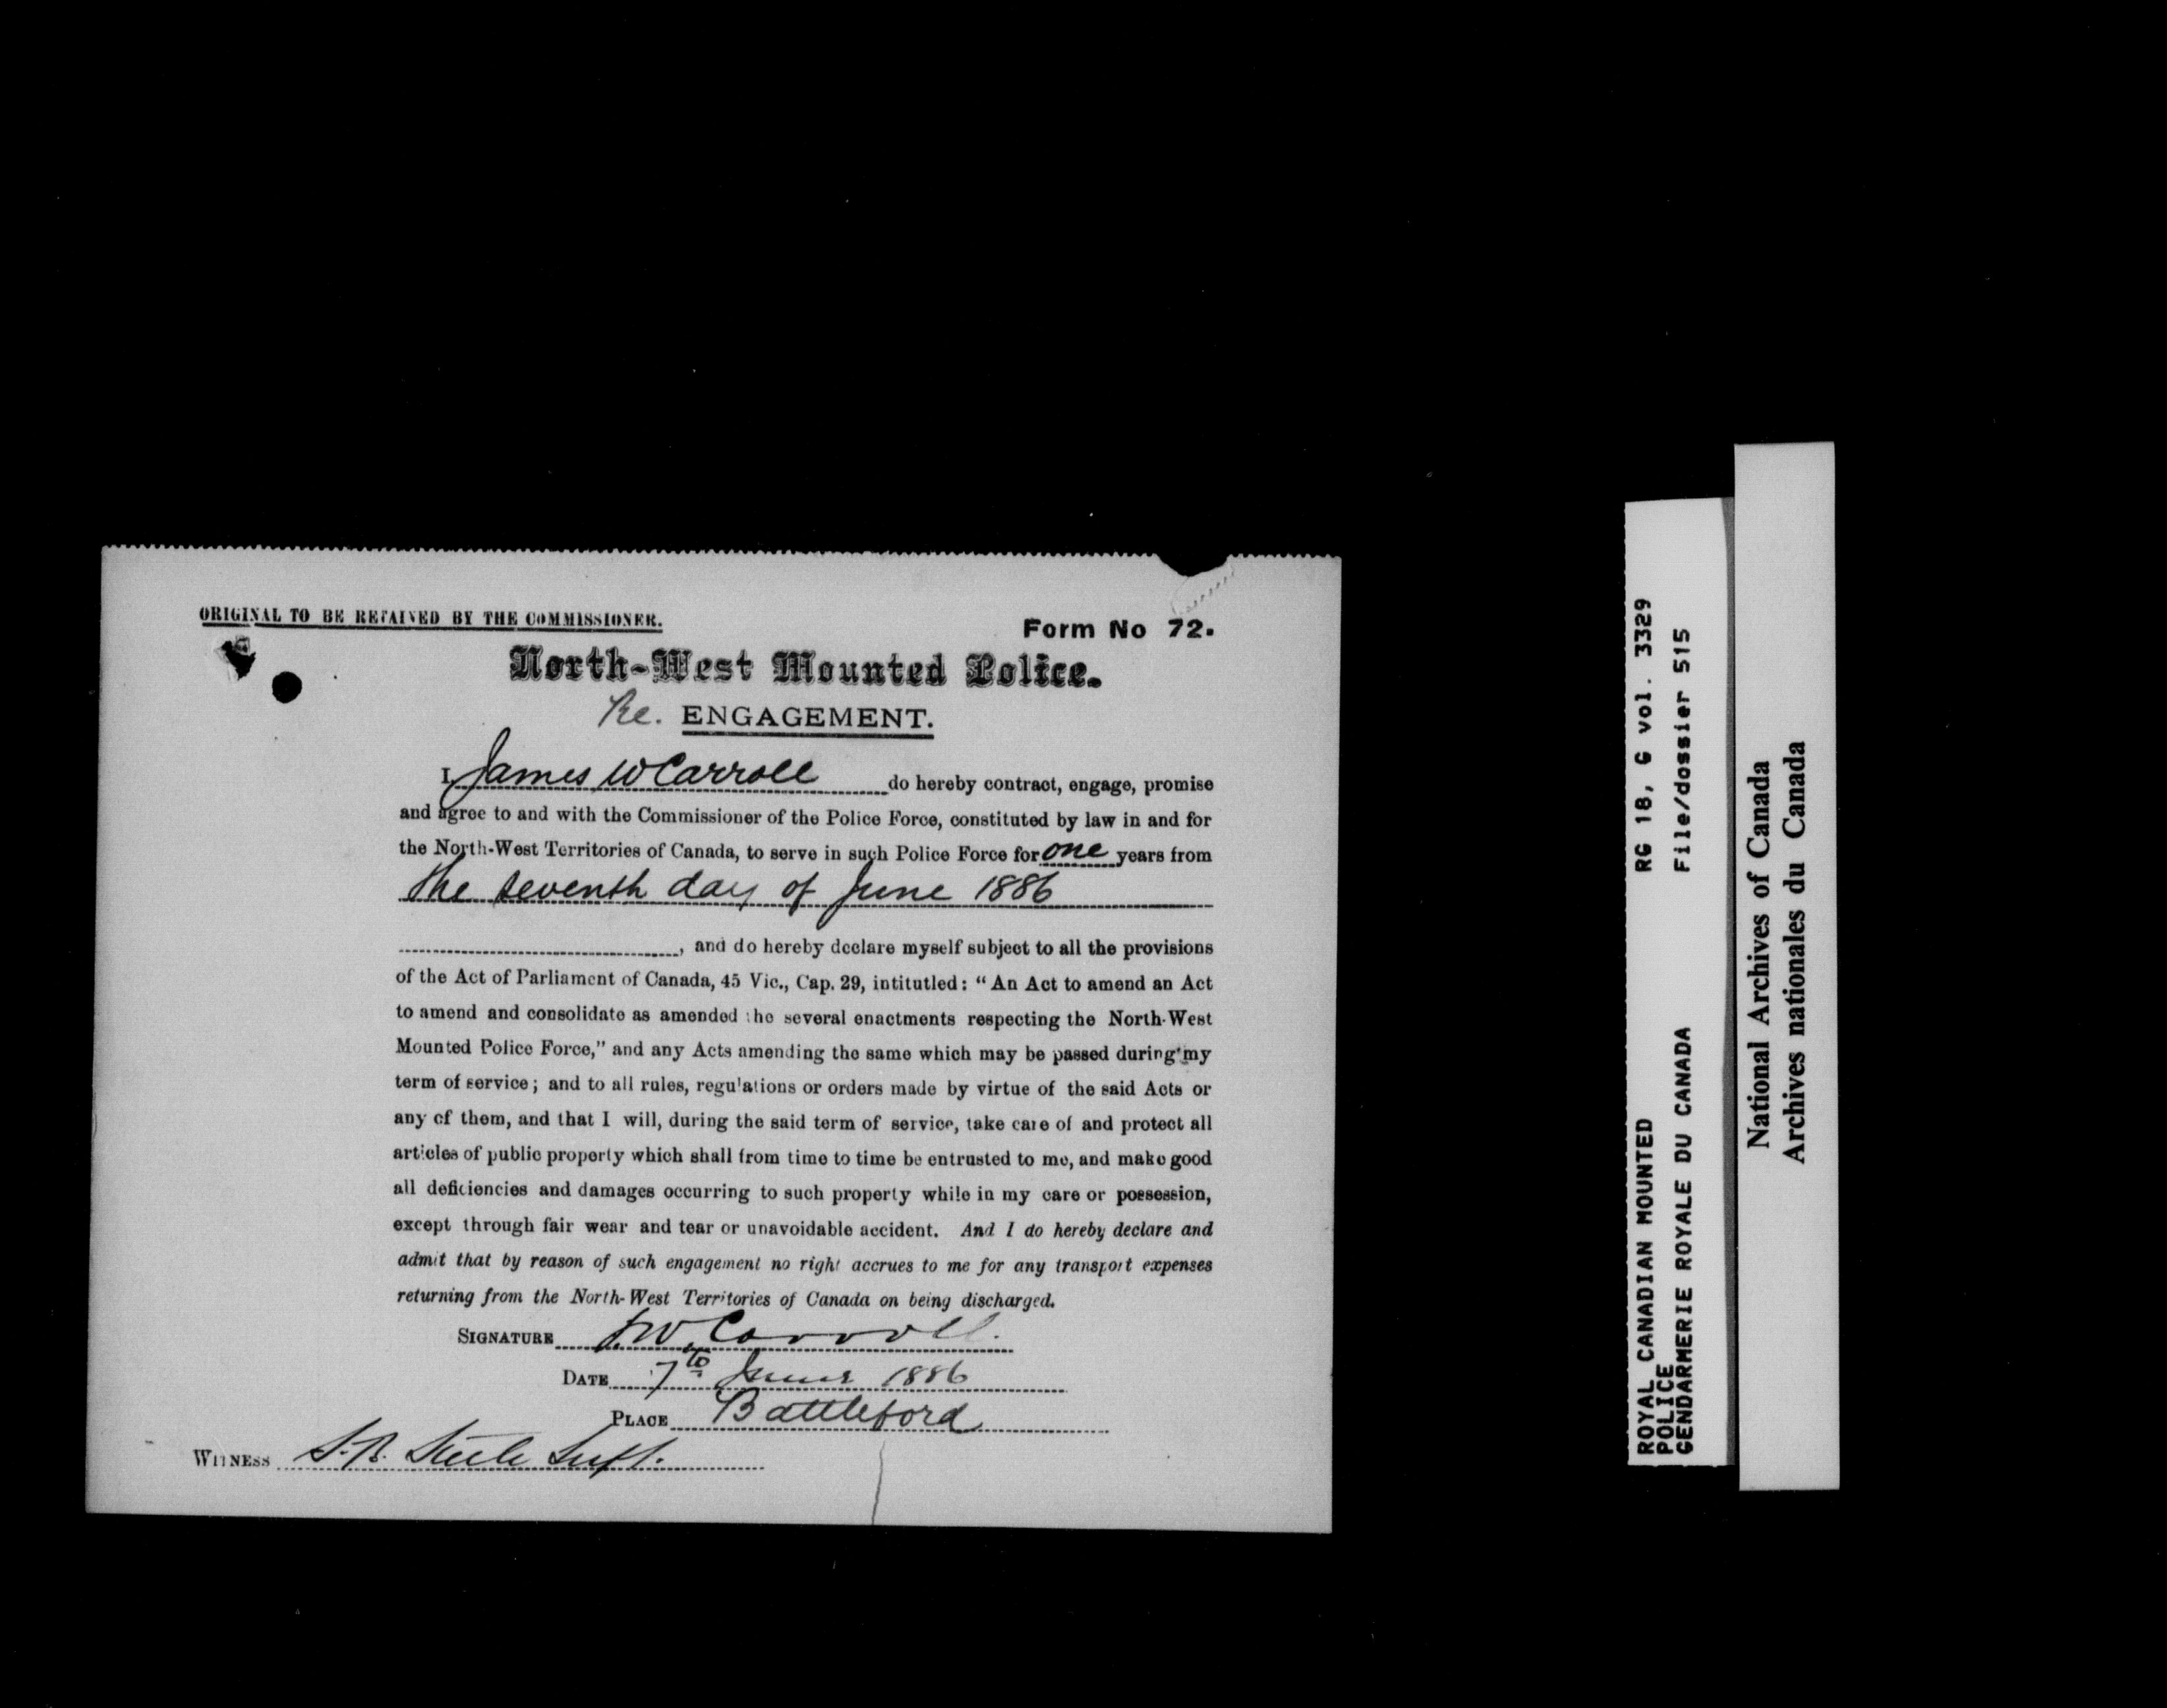 ORIGINAL TO BE RETAINED BY THE COMMISSIONER.
Form No 72.
North-West Mounted Police.
Re. ENGAGEMENT.
I, James W Carroll do hereby contract, engage, promise
and agree to and with the Commissioner of the Police Force, constituted by law in and for
the North-West Territories of Canada, to serve in such Police Force for one years from
the seventh day of June 1886
, and do hereby declare myself subject to all the provisions
of the Act of Parliament of Canada, 45 Vic., Cap. 29, intitutled: “An Act to amend an Act
to amend and consolidate as amended the several enactments respecting the North-West
Mounted Police Force,” and any Acts amending the same which may be passed during my
term of service; and to all rules, regulations or orders made by virtue of the said Acts or
any of them, and that I will, during the said term of service, take care of and protect all
articles of public property which shall from time to time be entrusted to me, and make good
all deficiencies and damages occurring to such property while in my care or possession,
except through fair wear and tear or unavoidable accident. And I do hereby declare and
admit that by reason of such engagement no right accrues to me for any transport expenses
returning from the North-West Territories of Canada on being discharged.
SIGNATURE J.W. Carroll.
DATE 7th June 1886
PLACE Battleford
WITNESS S.B. Steele Supt.
ROYAL CANADIAN MOUNTED RG 18, G vol. 3329
POLICE
GENDARMERIE ROYALE DU CANADA File/dossier 515
National Archives of Canada
Archives nationales du Canada